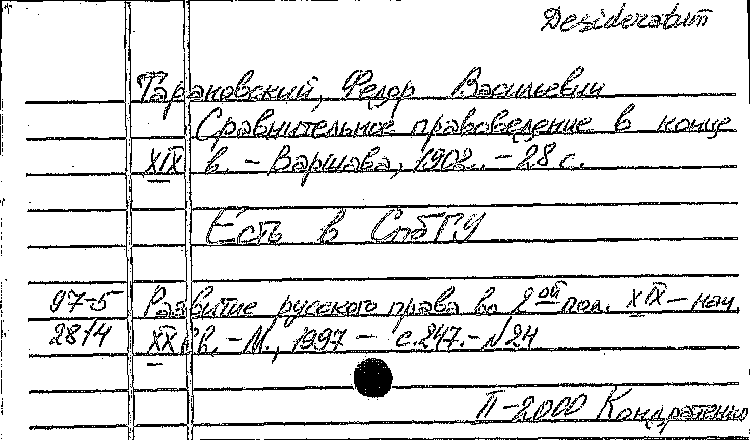 Desideratum
Тарановский, Федор Васильевич
Сравнительное правоведение в конце
XIX в. - Варшава, 1902. - 28 с.
Есть в СпбГУ
97-5 Развитие русского права во 2ой пол. XIX - нач.
2814 XX вв. - М., 1997 - с. 247. - №24
II-2000 Кондратенко